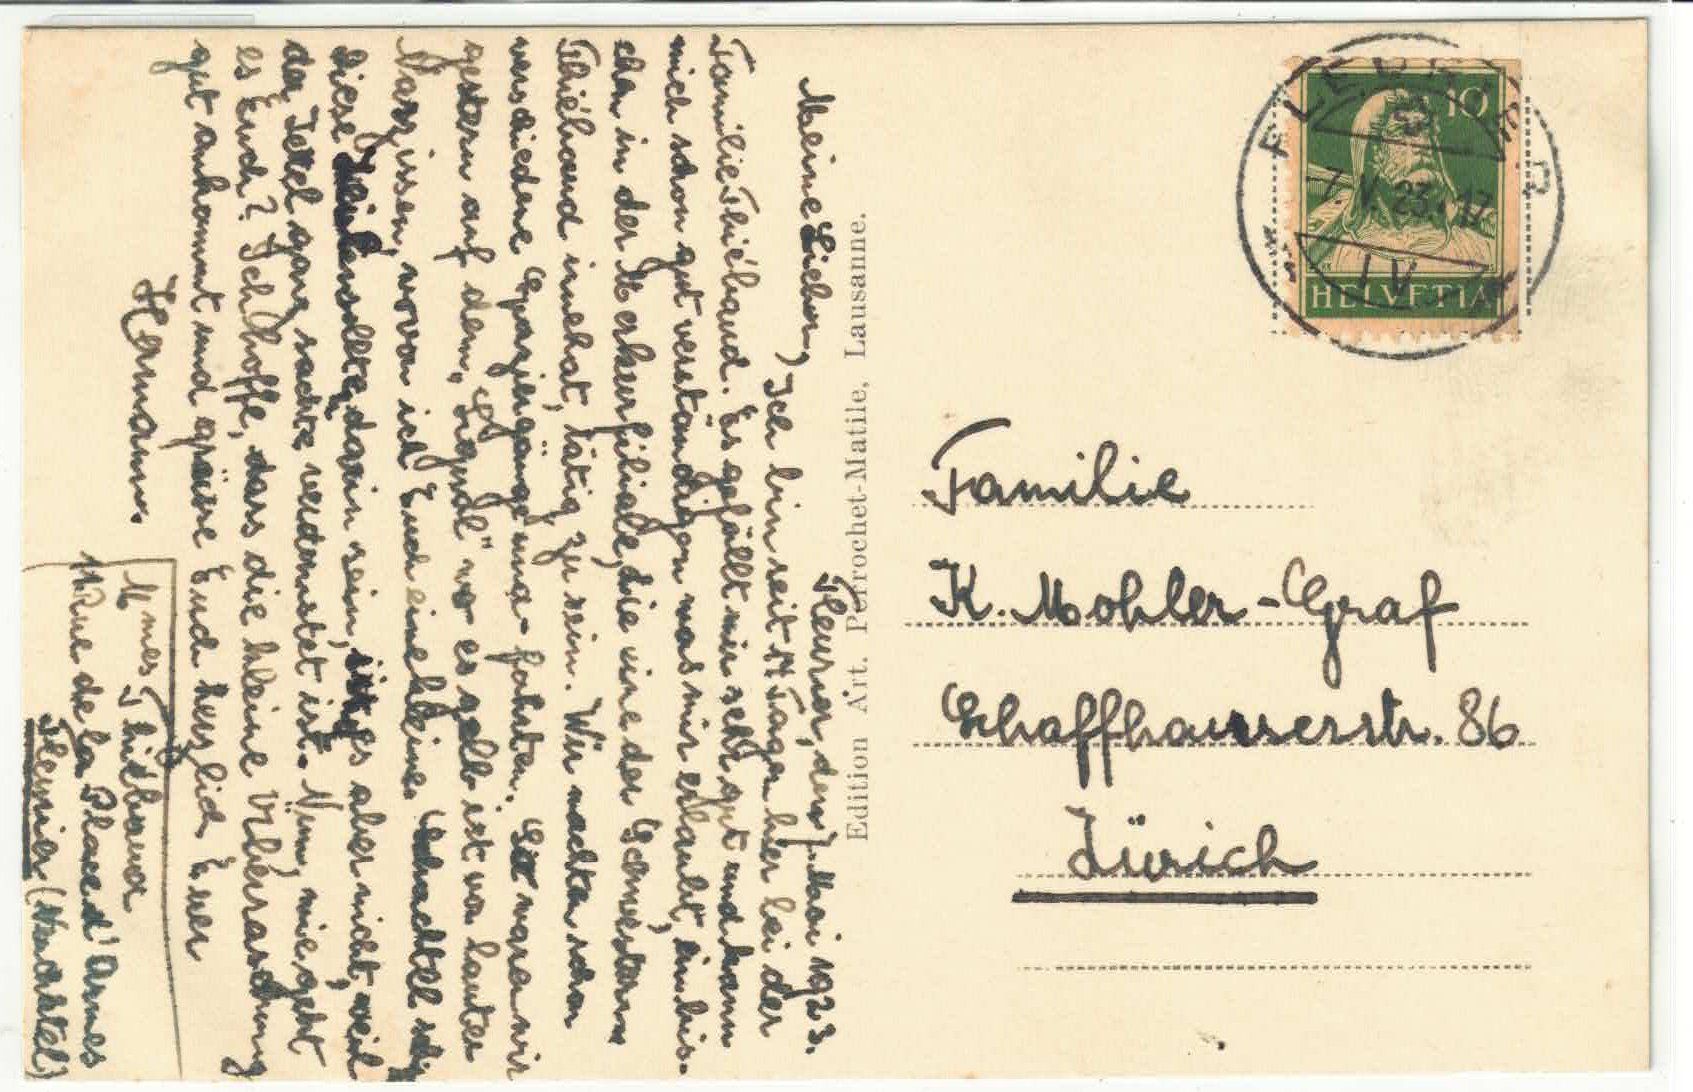 Fleurier, den 7. Mai 1923.
Meine Lieben, Ich bin seit 14 Tagen hier bei der
Familie Thiébaud. Es gefällt mir sehr gut und kann
mich schon gut verständigen was mir erlaubt, ein bis-
chen in der Merkurfiliale, die eine der Schwestern
Thiébaud innehat, tätig zu sein. Wir machten schon
verschiedene Spaziergänge und -fahrten. So waren wir
gestern auf dem wo es gelb ist von lauter
Narzissen, wovon ich Euch eine kleine Schachtel
Diese sollte darin sein, ist es aber nicht, weil
der Zettel ganz sachte verdunstet ist. Nun, wie geht
es Euch? Ich hoffe, dass die kleine Überraschung
gut ankommt und grüsse Euch herzlich Euer
Hermann
Mmes Thiébaud
11 Rue de la Place d'Armes
Fleurier (Neuchâtel)
Edition Art. Perrochet-Matile, Lausanne.
FLEURIER
-7.V.23.17
IV
10
HELVETIA
Familie
K. Mohler-Graf
Schaffhauserstr. 86
Zürich